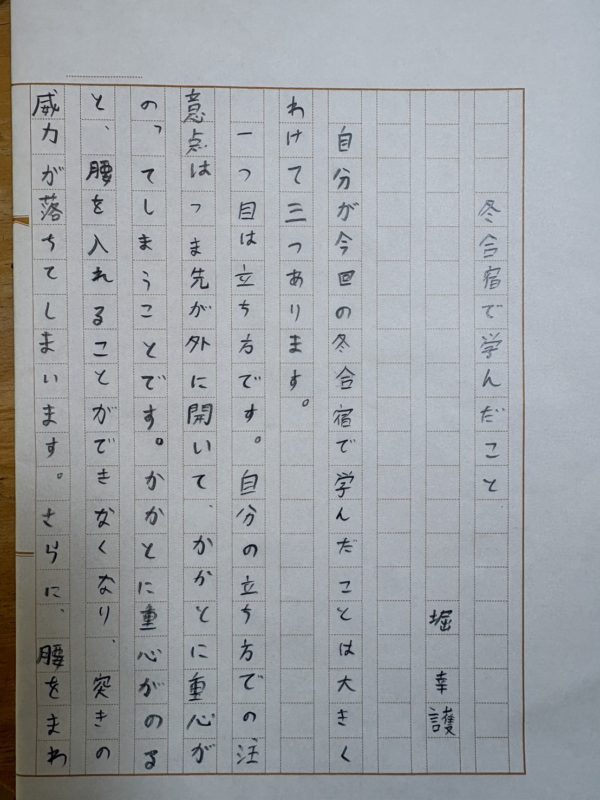 冬合宿で学んだこと
堀 幸護
自分が今回の冬合宿で学んだことは大きく
わけて三つあります。
一つ目は立ち方です。自分の立ち方での注
意点はつま先が外に開いて、かかとに重心が
のってしまうことです。かかとに重心がのる
と、腰を入れることができなくなり、突きの
威力が落ちてしまいます。さらに、腰をまわ